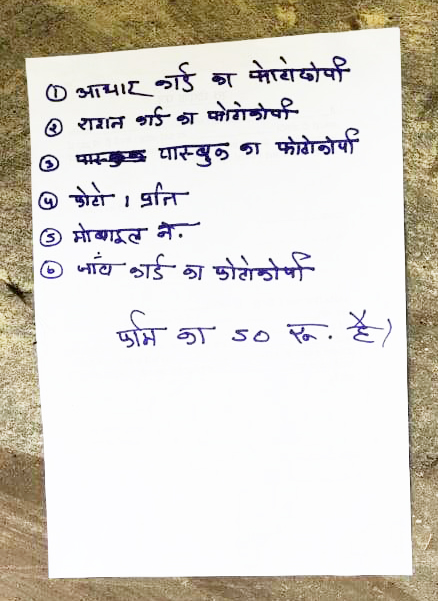 ① आधार कार्ड का फोटोकोपी
② राशन कार्ड का फोटोकोपी
③ पासबुक का फोटोकोपी
④ फोटो 1 प्रति
⑤ मोबाइल नं.
⑥ जॉब कार्ड का फोटोकोपी
फॉर्म का 50 रू. है)